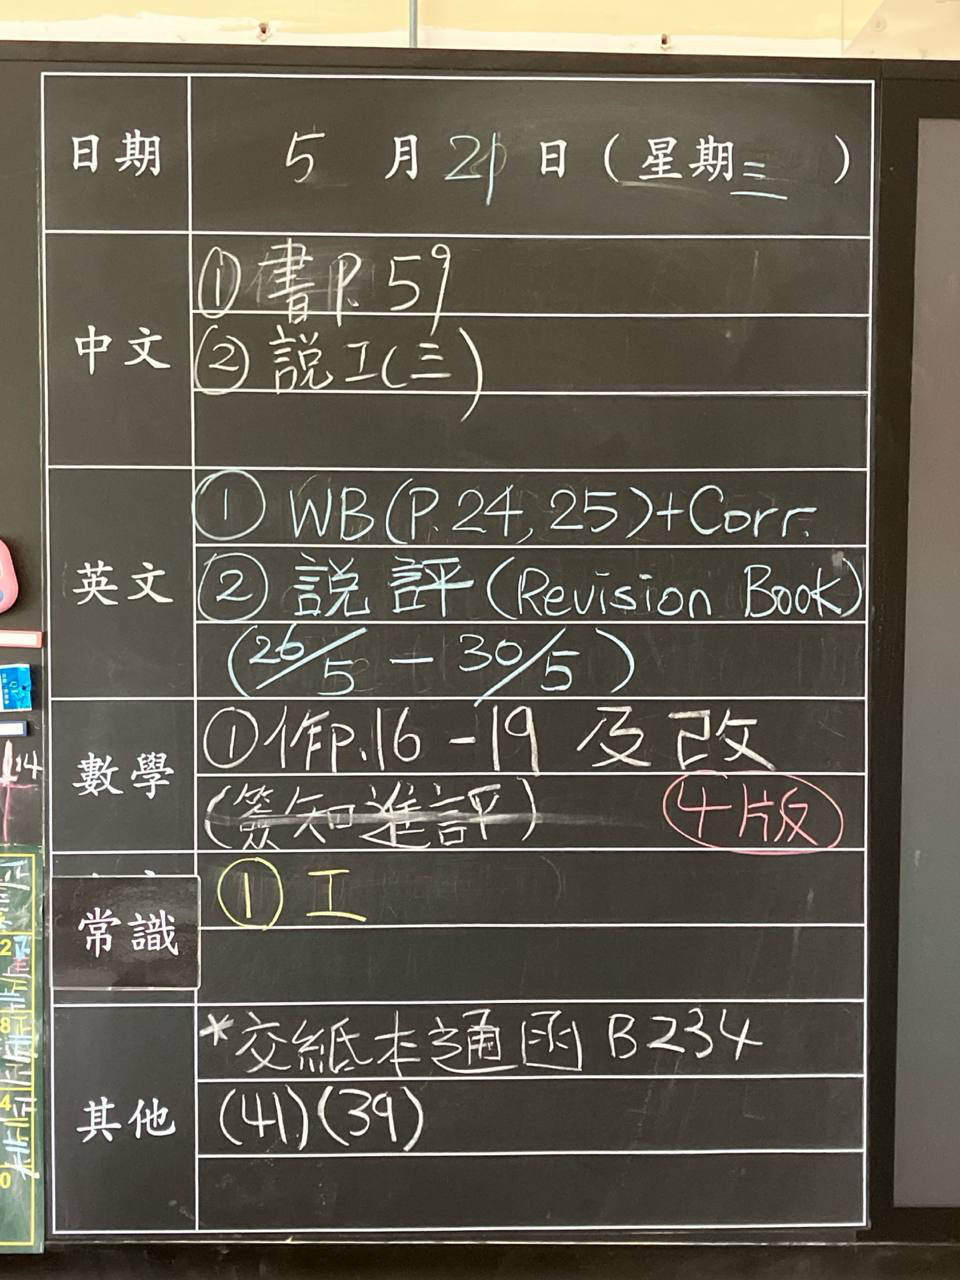 日期 5 月 21 日 ( 星期三 )
中文 ① 書P.59
② 説工(三)
英文 ① WB(P.24, 25)+Corr.
② 説評(Revision Book)
(26/5 - 30/5)
數學 ① 作P.16 - 19 及改
(簽知進評) 4版
常識 ① 工
其他 *交紙本通函 B234
(41)(39)